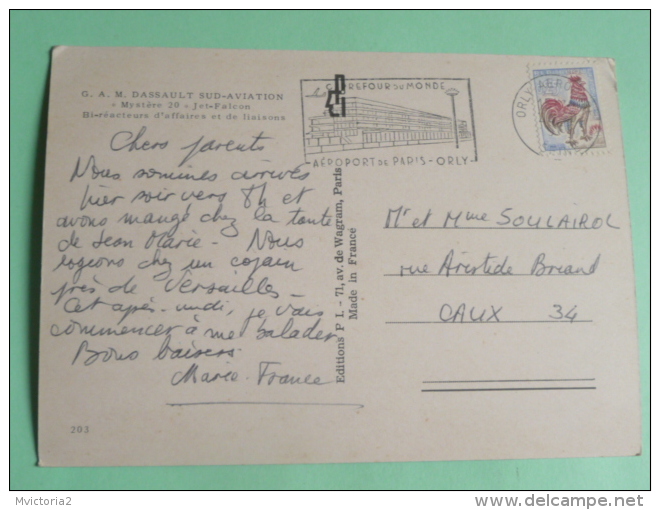 G. A. M. DASSAULT SUD-AVIATION
« Mystère 20 » Jet-Falcon
Bi-réacteurs d'affaires et de liaisons
CARREFOUR DU MONDE
AÉROPORT DE PARIS - ORLY
ORLY AÉRO
Chers parents
Nous sommes arrivés
hier soir vers 8h et
avons mangé chez la tante
de Jean Marie - Nous
logeons chez un copain
près de Versailles -
Cet après-midi, je vais
commencer à me balader
Bons baisers
Marie-France
Editions P I. - 71, av. de Wagram, Paris
Made in France
Mr et Mme SOULAIROL
rue Aristide Briand
CAUX 34
203
Mvictoria2
delcampe.net